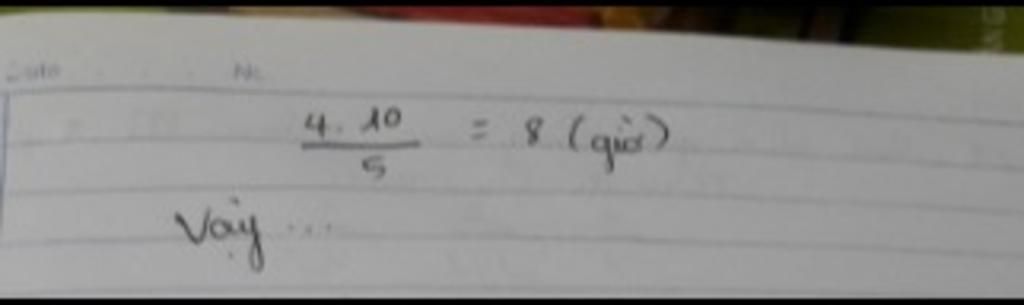 Date . . . No.
4. 10 / 5 = 8 (giờ)
Vậy ...